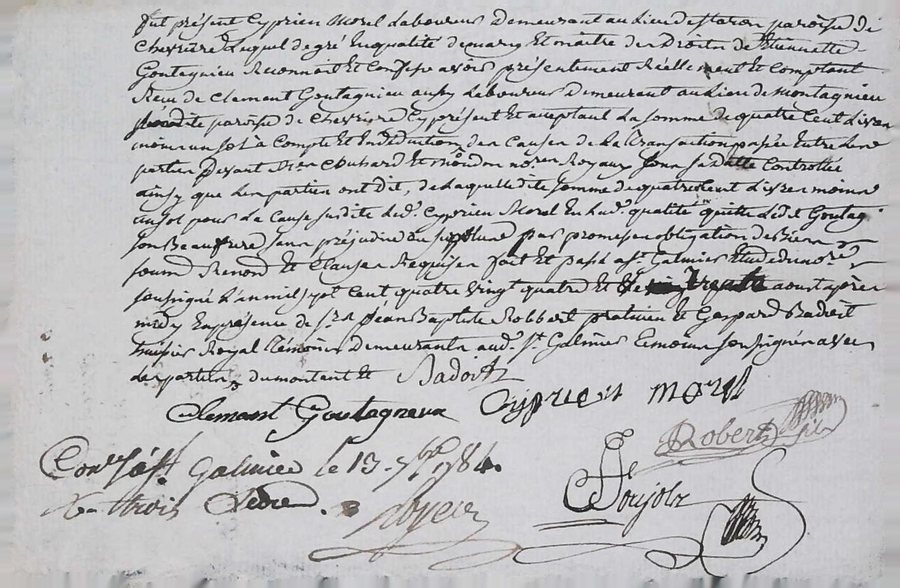 fut présent Cyprien Morel Laboureur Demeurant au Lieu de paroisse de
Chevriere Lequel de gré En qualité de mary Et maitre des Droits de Etiennette
Goutagnieu Reconnoit Et Confesse avoir présentement Réellement Et Comptant
Reçu de Clement Goutagnieu aussy Laboureur Demeurant au Lieu de Montagnieu
susdite paroisse de Chevriere Cy présent Et aceptant La somme de quatre Cent Livres
moins un sol a Compte Et En Déduction des Causes de La Transaction passée Entre Les
parties Devant Mes Chuhard Et Mondon nores Royaux sous sa datte Controllée
ainsy que Les parties ont dit, de Laquelle dite somme de quatre Cent Livres moins
un sol pour La Cause susdite Led. Cyprien Morel En sad. qualité En quitte Led. Goutag
son Beaufrere sans préjudice du surplus par promesses obligation de Biens
soumis Renond Et Clauses Requises fait Et passé a St Galmier Etude du nore
soussigné L'an mil sept Cent quatre vingt quatre Et Le trente aoust après
midy En présence de sr Jean Baptiste Robbert praticien Et Gaspard Badoit
huissier Royal Témoins Demeurants aud. St Galmier Temoins soussignés avec
Les parties, du montant Et Badoit
Clement Goutagneux Cyprien Morel
Robert fils
Conlé à St Galmier le 13 7bre 1784.
Poujolz
trois
Royer